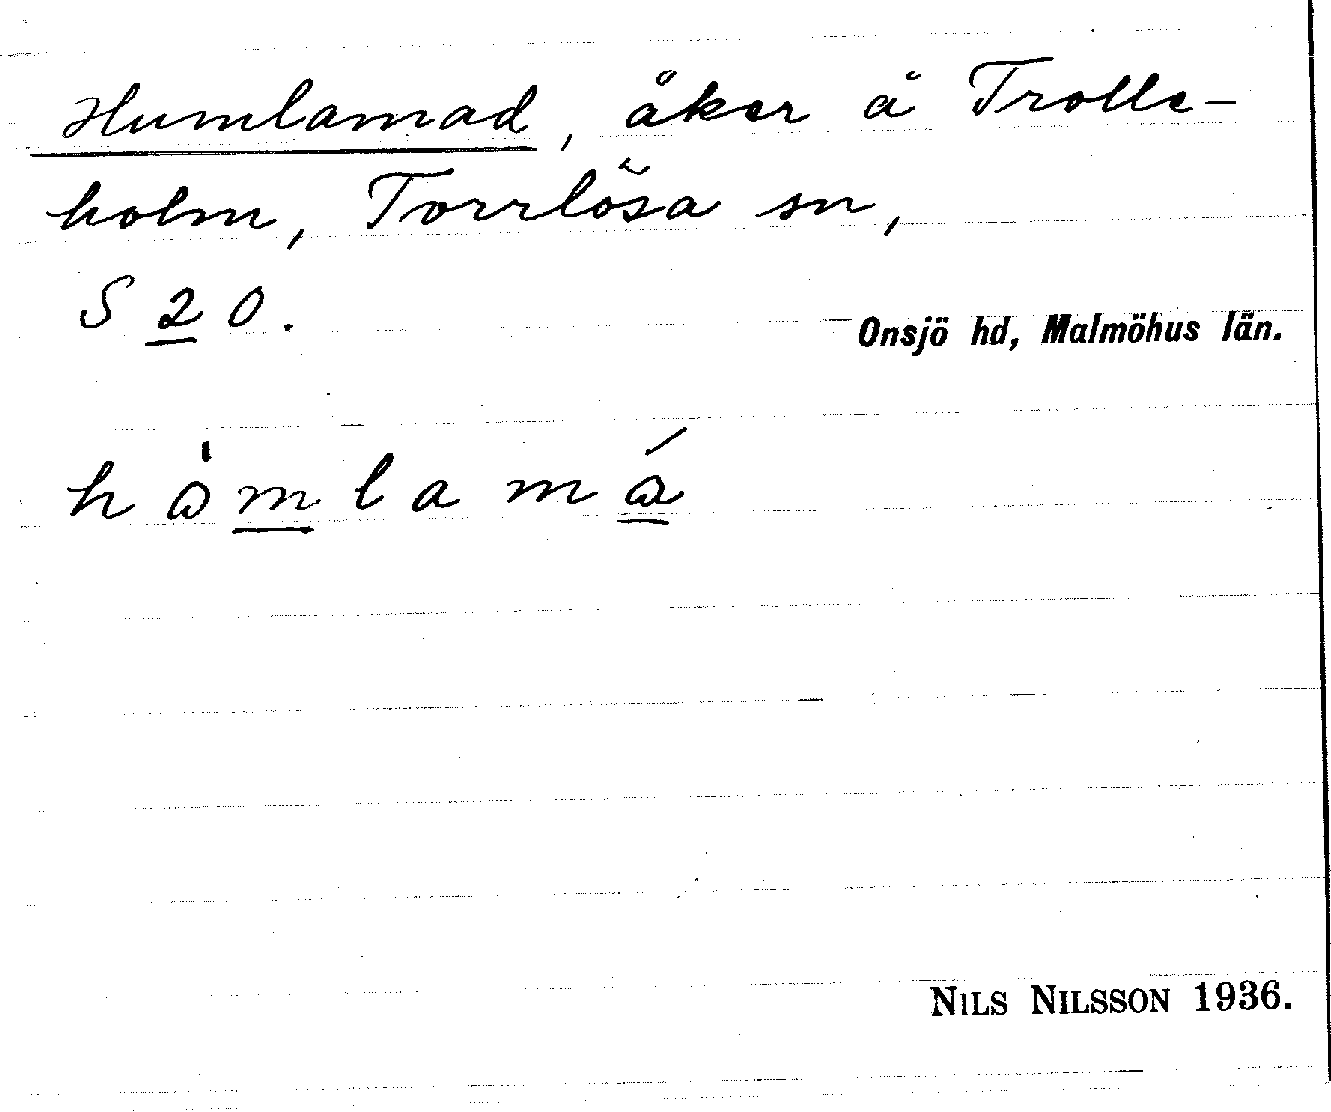 Humlamad, åker å Trolle-
holm, Torrlösa sn,
S 20.
Onsjö hd, Malmöhus län.
NILS NILSSON 1936.